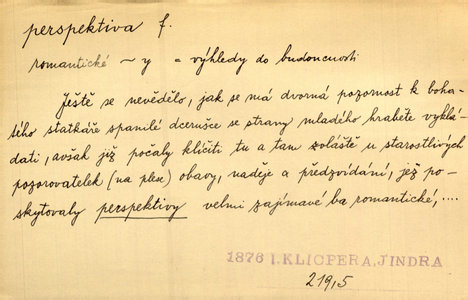 perspektiva f.
romantické ~ y = výhledy do budoucnosti
Ještě se nevědělo, jak se má dvorná pozornost k boha-
tého statkáře spanilé dcerušce se strany mladého hraběte vyklá-
dati, avšak již počaly klíčiti tu a tam zvláště u starostlivých
pozorovatelek (na plese) obavy, naděje a předzvídání, jež po-
skytovaly perspektivy velmi zajímavé ba romantické, ....
1876 I. KLICPERA, JINDRA
219,5